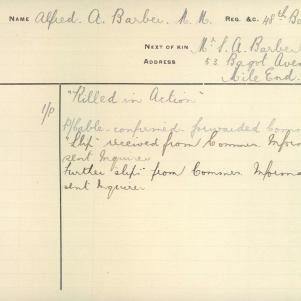 NAME Alfred. A. Barber. M. M. REG. &C. 48th Ba
NEXT OF KIN Mr S. A. Barber
ADDRESS 53 Bagot Aven
Mile End.
1/P "Killed in Action"
A/Cable confirmed forwarded Comm
"Slip" received from Commrs Informa
sent Inquirer
Further slip from Commrs Informa
sent Inquirer